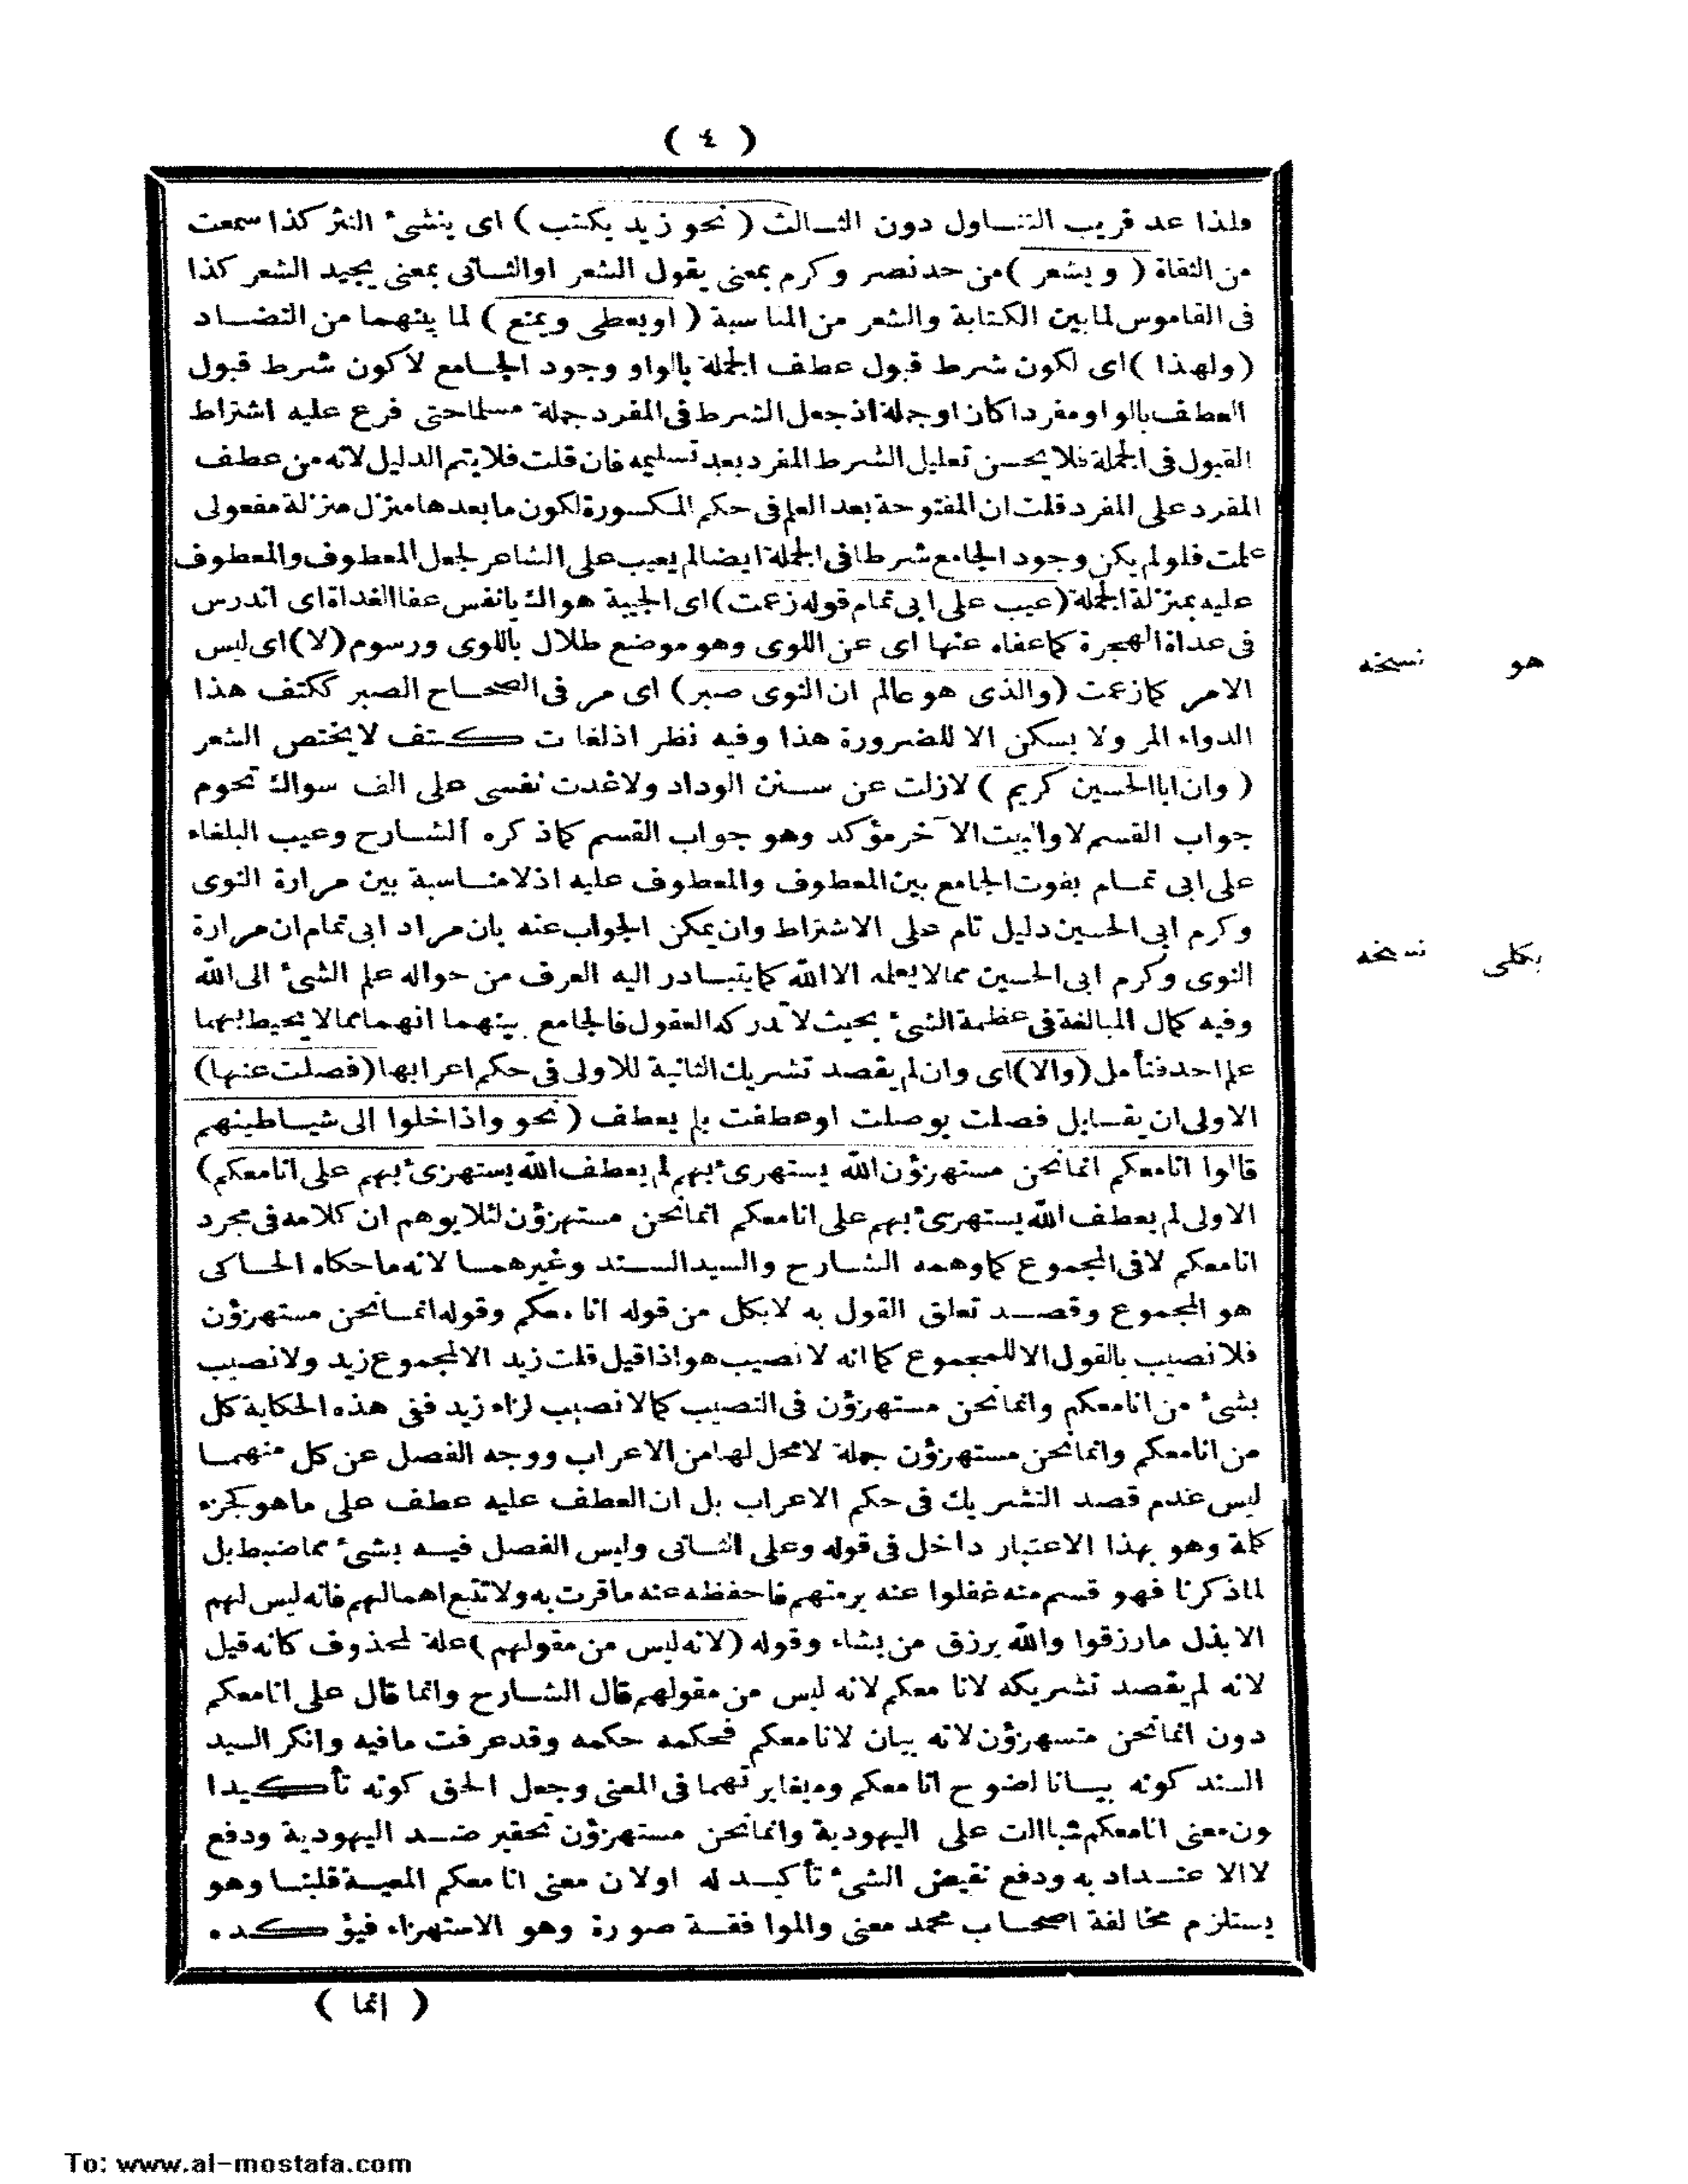 ( ٤ )
ولذا عد قريب التناول دون الثالث ( نحو زيد يكتب ) اى ينشىء النثر كذا سمعت
من الثقاة ( ويشعر ) من حد نصر وكرم بمعنى يقول الشعر او الثانى بمعنى يجيد الشعر كذا
فى القاموس لما بين الكتابة والشعر من المناسبة ( او يعطى ويمنع ) لما بينهما من التضاد
( ولهذا ) اى لكون شرط قبول عطف الجملة بالواو وجود الجامع لا كون شرط قبول
العطف بالواو مفردا كان او جملة اذ جعل الشرط فى المفرد جملة مسلما حتى فرع عليه اشتراط
القبول فى الجملة فلا يحسن تعليل الشرط المفرد بعد تسليمه فان قلت فلا يتم الدليل لانه من عطف
المفرد على المفرد قلت ان المفتوحة بعد العلم فى حكم المكسورة لكون ما بعدها منزل منزلة مفعولى
علمت فلو لم يكن وجود الجامع شرطا فى الجملة ايضا لم يعيب على الشاعر لجعل المعطوف والمعطوف
عليه بمنزلة الجملة ( عيب على ابى تمام قوله زعمت ) اى الحبيبة هواك يا نفس عفا الغداة اى اندرس
فى عداة الهجرة كما عفاه عنها اى عن اللوى وهو موضع طلال باللوى ورسوم ( لا ) اى ليس
هو نسخه
الامر كما زعمت ( والذى هو عالم ان النوى صبر ) اى مر فى الصحاح الصبر ككتف هذا
الدواء المر ولا يسكن الا للضرورة هذا وفيه نظر اذ لغات كتف لا يختص الشعر
( وان ابا الحسين كريم ) لازلت عن سنن الوداد ولا غدت نفسى على الف سواك تحوم
جواب القسم لا والبيت الآخر مؤكد وهو جواب القسم كما ذكره الشارح وعيب البلغاء
على ابى تمام بفوت الجامع بين المعطوف والمعطوف عليه اذ لا مناسبة بين مرارة النوى
وكرم ابى الحسين دليل تام على الاشتراط وان يمكن الجواب عنه بان مراد ابى تمام ان مرارة
النوى وكرم ابى الحسين مما لا يعلمه الا الله كما يتبادر اليه العرف من حواله علم الشىء الى الله
نسخه
وفيه كمال المبالغة فى عظمة الشىء بحيث لا تدركه العقول فالجامع بينهما انهما مما لا يحيط بهما
علم احد فتأمل ( والا ) اى وان لم يقصد تشريك الثانية للاولى فى حكم اعرابها ( فصلت عنها )
الاولى ان يقابل فصلت بوصلت او عطفت بلم يعطف ( نحو واذا خلوا الى شياطينهم
قالوا انا معكم انما نحن مستهزؤن الله يستهزىء بهم لم يعطف الله يستهزىء بهم على انا معكم )
الاولى لم يعطف الله يستهزىء بهم على انا معكم انما نحن مستهزؤن لئلا يوهم ان كلامه فى مجرد
انا معكم لا فى المجموع كما وهمه الشارح والسيد السند وغيرهما لانه ما حكاه الحاكى
هو المجموع وقصد تعلق القول به لا بكل من قوله انا معكم وقوله انما نحن مستهزؤن
فلا نصيب بالقول الا للمجموع كما انه لا نصيب هو اذا قيل قلت زيد الا لمجموع زيد ولا نصيب
بشىء من انا معكم وانما نحن مستهزؤن فى النصيب كما لا نصيب لزاء زيد ففى هذه الحكاية كل
من انا معكم وانما نحن مستهزؤن جملة لا محل لها من الاعراب ووجه الفصل عن كل منهما
ليس عدم قصد التشريك فى حكم الاعراب بل ان العطف عليه عطف على ما هو كجزء
كلمة وهو بهذا الاعتبار داخل فى قوله وعلى الثانى وليس الفصل فيه بشىء مما ضبط بل
لما ذكرنا فهو قسم منه غفلوا عنه برمتهم فاحفظه عنه ما قرت به ولا تتبع اهمالهم فانه ليس لهم
الا بذل ما رزقوا والله يرزق من يشاء وقوله ( لانه ليس من مقولهم ) علة لمحذوف كانه قيل
لانه لم يقصد تشريكه لانا معكم لانه ليس من مقولهم قال الشارح وانما قال على انا معكم
دون انما نحن متسهزؤن لانه بيان لانا معكم فحكمه حكمه وقد عرفت ما فيه وانكر السيد
السند كونه بيانا لضوح انا معكم ومغايرتهما فى المعنى وجعل الحق كونه تأكيدا
معنى انا معكم على اليهودية وانما نحن مستهزؤن تحقير ضد اليهودية ودفع
لا الاعتداد به ودفع نقيض الشىء تأكيد له اولان معنى انا معكم المعية قلبنا وهو
يستلزم مخالفة اصحاب محمد معنى والموافقة صورة وهو الاستهزاء فيؤكده
( انما )
To: www.al-mostafa.com